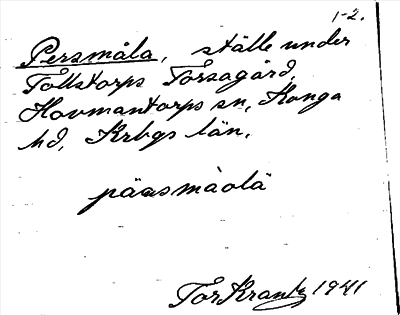 1-2.
Persmåla, ställe under
Tollstorps Torsagård,
Hovmantorps sn, Konga
hd, Krbgs län.
pääsmàolä
Tor Krantz 1941